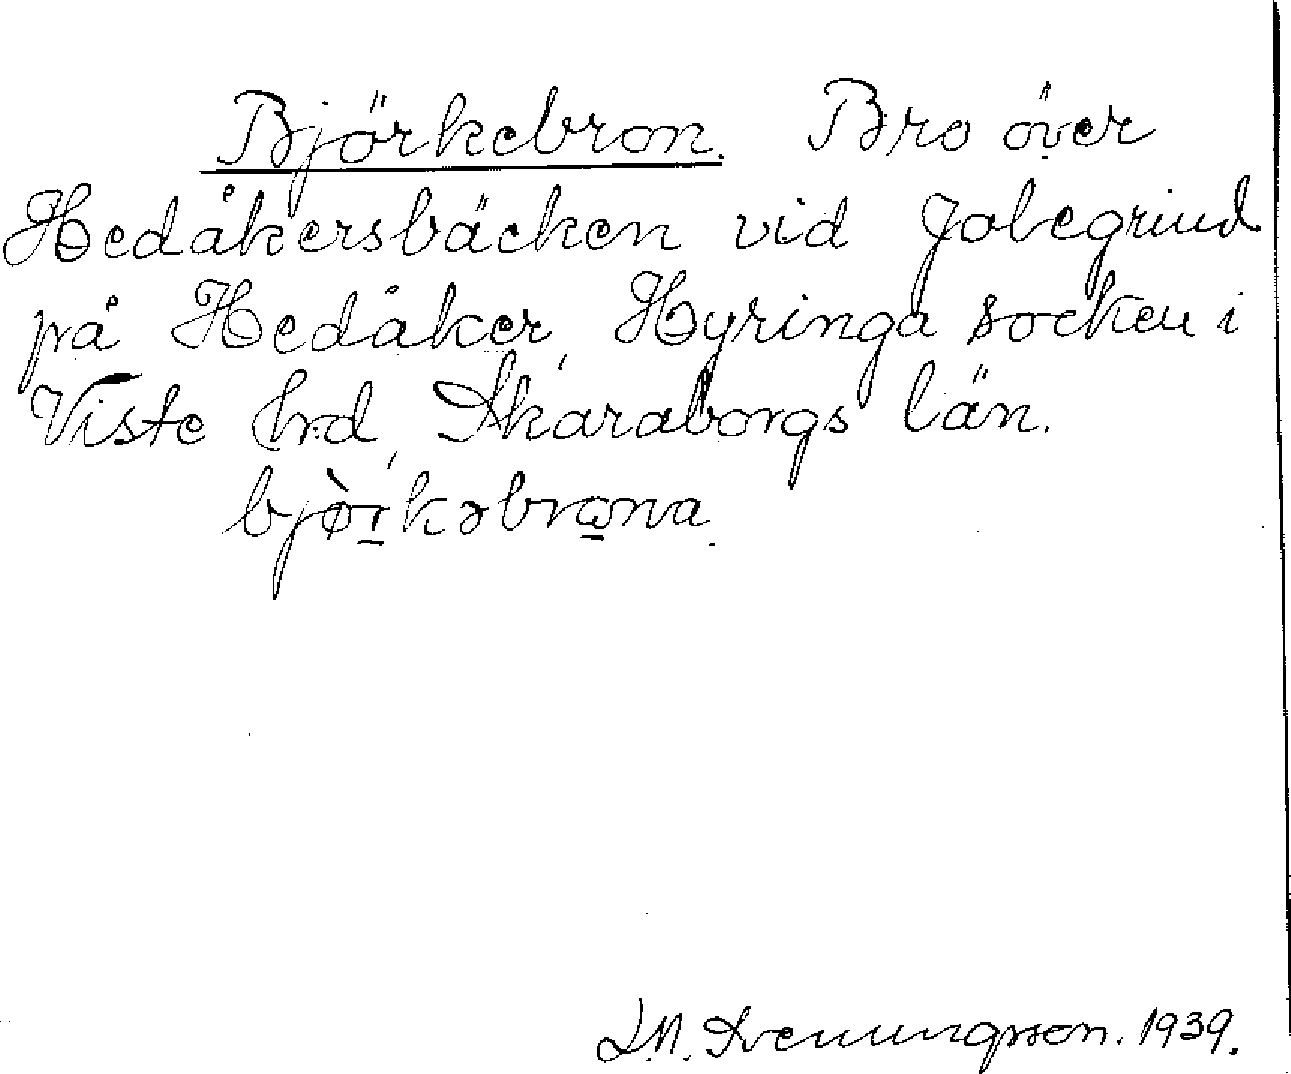 Björkebron. Bro över
Hedåkersbäcken vid Jobegrind
på Hedåker, Hyringa socken i
Viste hrd, Skaraborgs län.
bjö̀rkəbrωna.
J.M. Svenungsson. 1939.